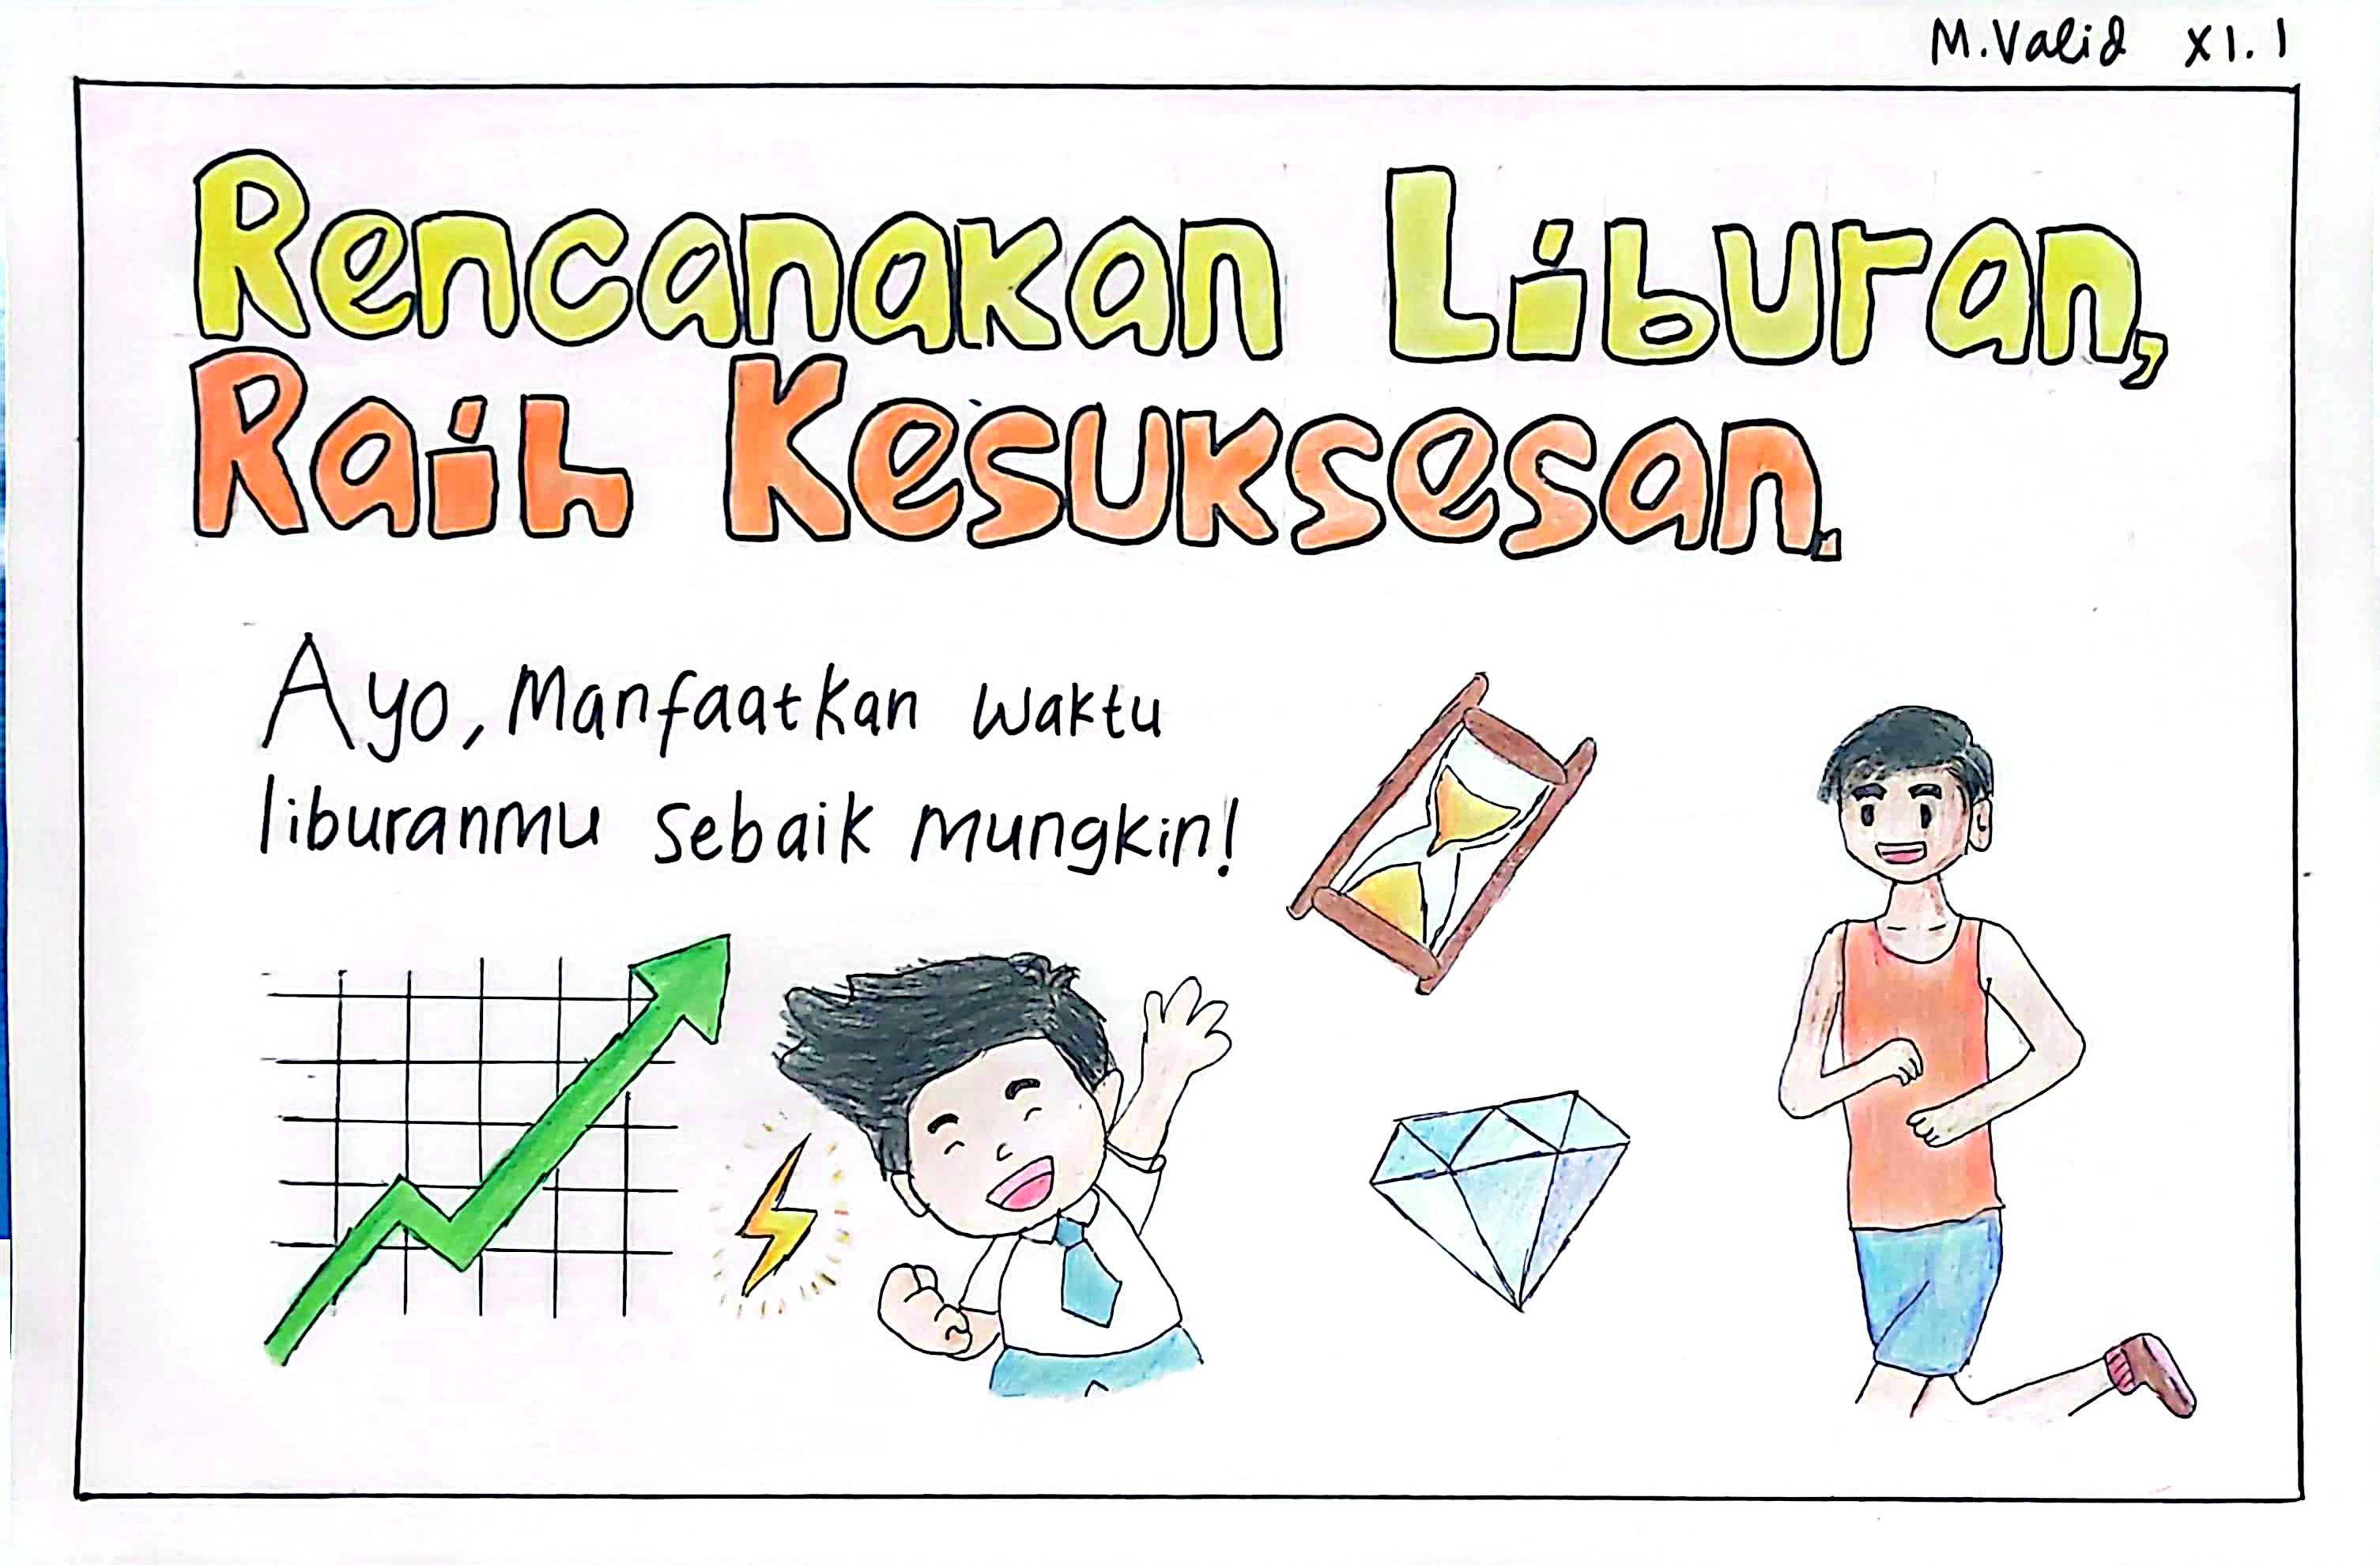 M.Valid XI.1
Rencanakan Liburan,
Raih Kesuksesan.
Ayo, Manfaatkan waktu
liburanmu sebaik mungkin!